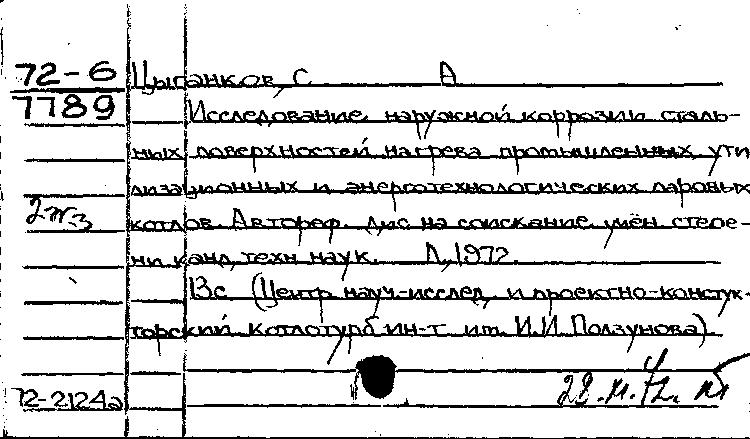 72-6 Цыганков, С А
7789 Исследование наружной коррозии сталь-
ных поверхностей нагрева промышленных ути
лизационных и энерготехнологических паровых
2 котлов. Автореф. дис на соискание учён степе-
ни канд. техн наук. Л, 1972.
13с (Центр науч-исслед. и проектно-констук-
торский котлотурб ин-т им И.И. Ползунова)
72-2124а